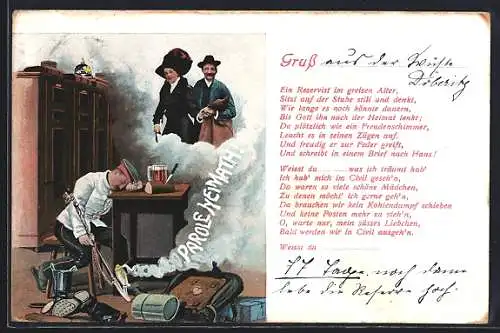 PAROLE HEIMATH
Gruß aus der Wüste
Döberitz
Ein Reservist im greisen Alter,
Sitzt auf der Stube still und denkt,
Wie lange es noch könnte dauern,
Bis Gott ihn nach der Heimat lenkt;
Da plötzlich wie ein Freudenschimmer,
Leucht es in seinen Zügen auf.
Und freudig er zur Feder greift,
Und schreibt in einem Brief nach Haus!
Weisst du was ich träumt hab'
Ich hab' mich im Civil geseh'n.
Da waren so viele schöne Mädchen,
Zu denen möcht' ich gerne geh'n.
Da brauchen wir kein Kohlendampf schieben
Und keine Posten mehr zu steh'n,
O, warte nur, mein süsses Liebchen,
Bald werden wir in Civil ausgeh'n.
Weisst du
77 Tage noch dann
lebe die Reserve hoch.